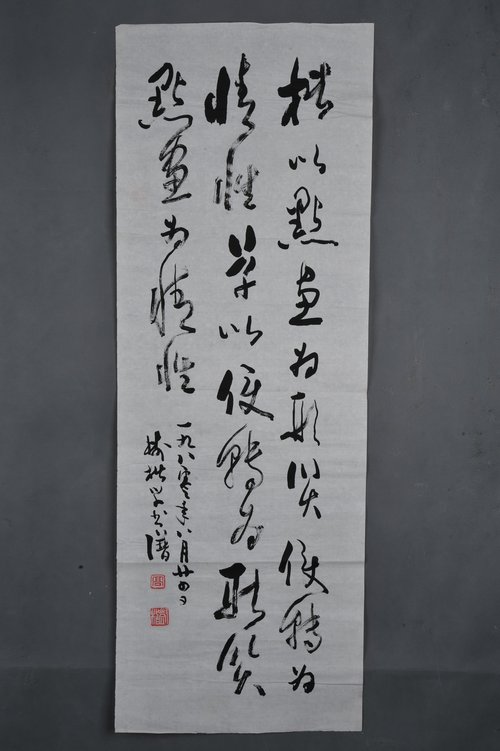 楷以點畫為形質使轉為
情性草以使轉為形質
點畫為情性
一九八零年八月廿四日